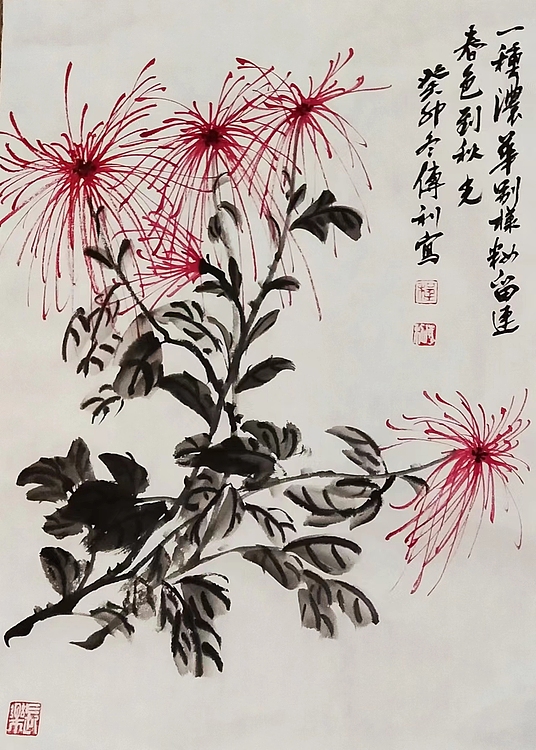 一種濃華別樣粧留連
春色到秋光
癸卯冬傳利寫
長樂